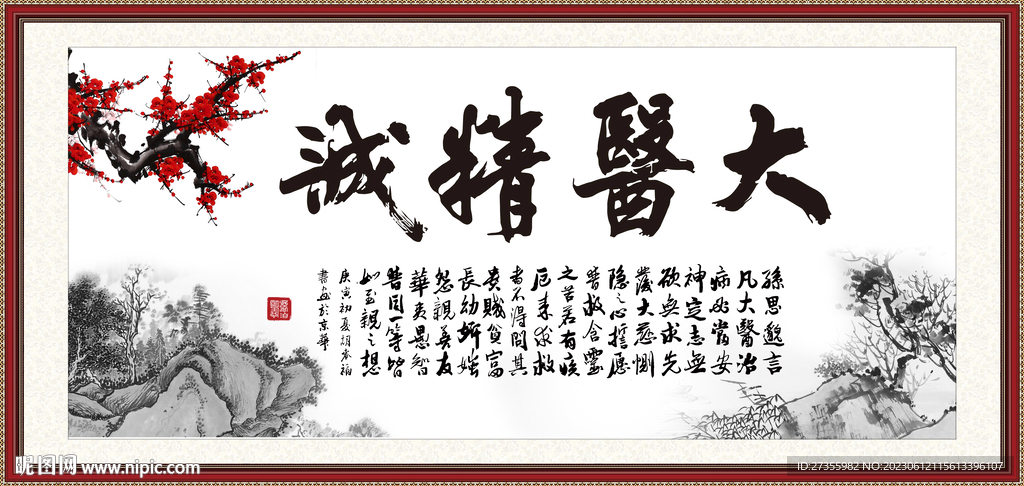 大醫精誠
孫思邈言
凡大醫治
病必當安
神定志無
欲無求先
發大慈惻
隐之心誓愿
普救含靈
之苦若有疾
厄来求救
者不得問其
貴賤貧富
長幼妍媸
怨親善友
華夷愚智
普同一等皆
如至親之想
庚寅初夏
於京華
昵图网 www.nipic.com
ID:27355982 NO:20230612115613396107